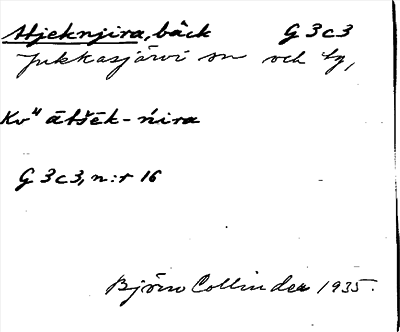 Atjeknjira, bäck G 3 c 3
Jukkasjärvi sn och tg,
Kv" ātšēk-ńira
G 3 c 3, n:r 16
Björn Collinder 1935.